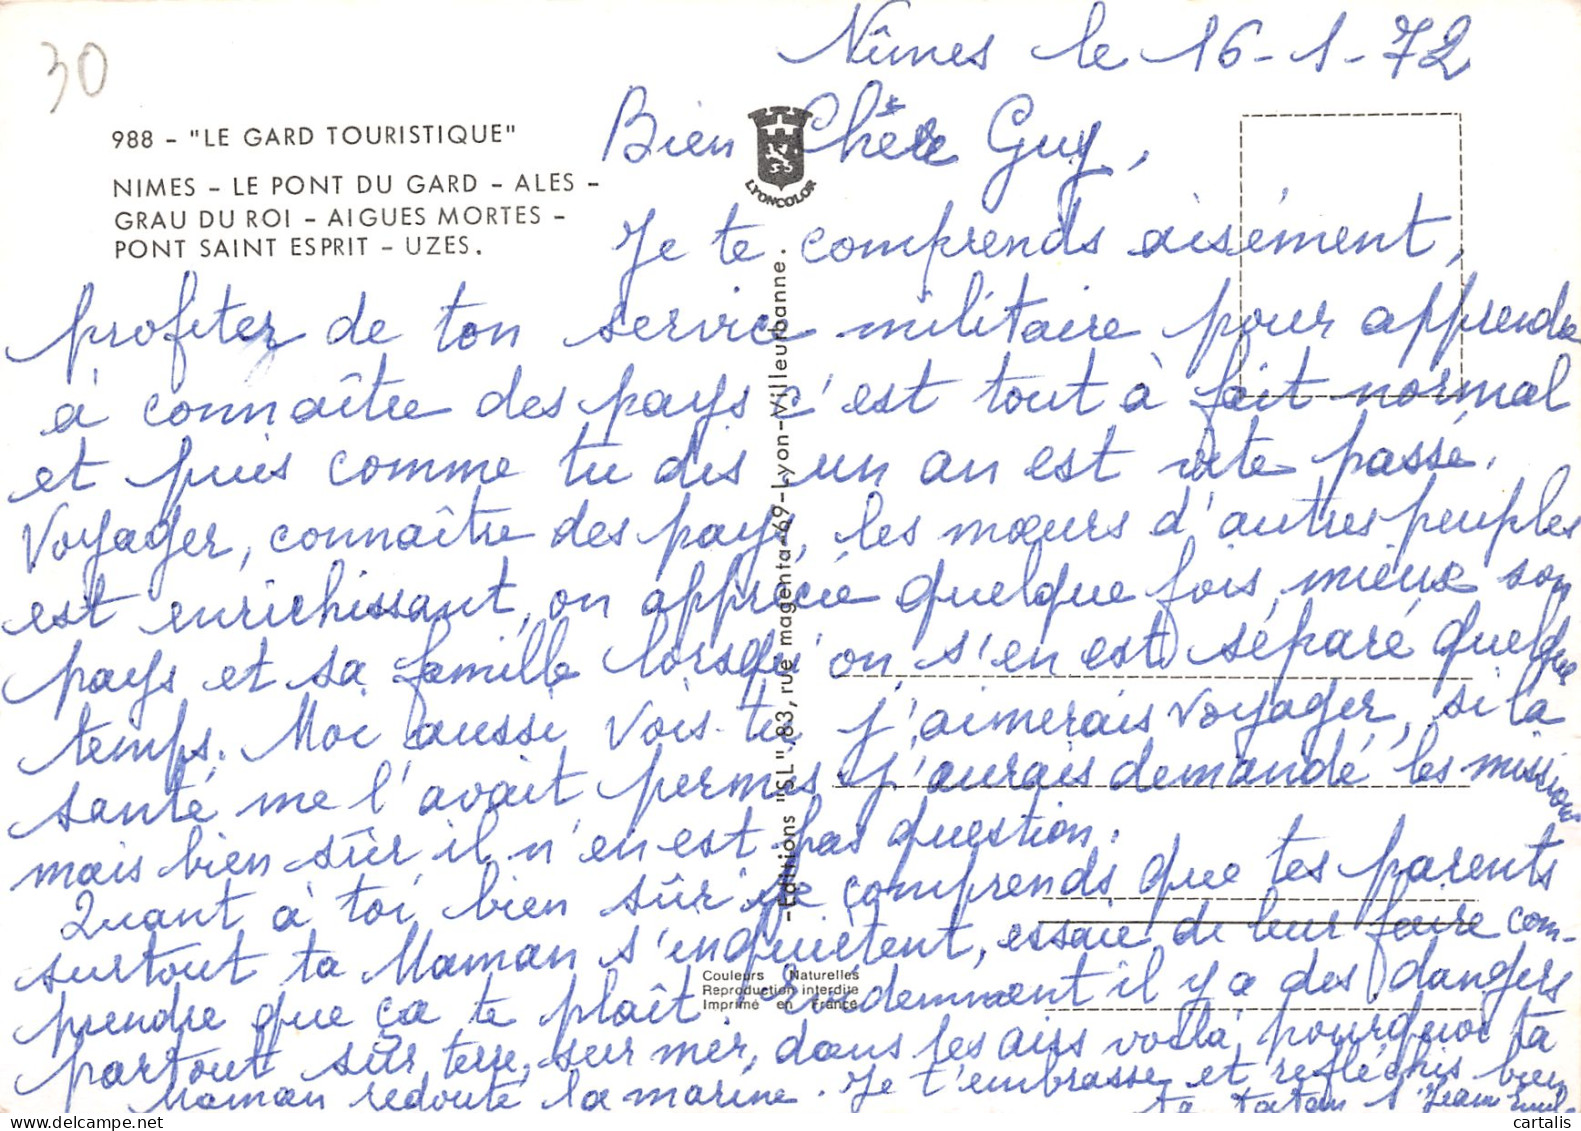 30
Nîmes le 16-1-72
988 - "LE GARD TOURISTIQUE"
NIMES - LE PONT DU GARD - ALES -
GRAU DU ROI - AIGUES MORTES -
PONT SAINT ESPRIT - UZES.
LYONCOLOR
-Editions "SL", 83, rue magenta-69-Lyon-Villeurbanne.
Couleurs Naturelles
Reproduction interdite
Imprimé en France
Bien Guy,
Je te comprends aisément,
profiter de ton service militaire pour apprendre
à connaître des pays c'est tout à fait normal
et puis comme tu dis un an est vite passé.
Voyager, connaître des pays, les mœurs d'autres peuples
est enrichissant, on apprécie quelque fois mieux son
pays et sa famille lorsqu'on s'en est séparé quelque
temps. Moi aussi vois-tu j'aimerais voyager, si la
santé me l'avait permis j'aurais demandé les missions
mais bien sûr il n'en est pas question.
Quant à toi, bien sûr je comprends que tes parents
surtout ta Maman s'inquiètent, essaie de leur faire com-
prendre que ça te plaît. Evidemment il y a des dangers
partout sur terre, sur mer, dans les airs voilà pourquoi ta
Maman redoute la marine. Je t'embrasse et réfléchis bien
ta tatan
cartalis